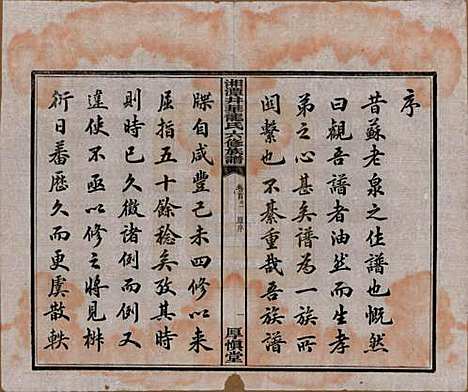 序
昔蘇老泉之作譜也慨然
曰觀吾譜者油然而生孝
弟之心甚矣譜為一族所
関繫也不綦重哉吾族譜
湘潭井星龍氏六修族譜
卷首之一 原序
一
厚慎堂
牒自咸豐己未四修以来
屈指五十餘稔矣攷其時
則時已久徵諸例而例又
違使不亟以修之將見椒
衍日蕃歷久而更虞散軼